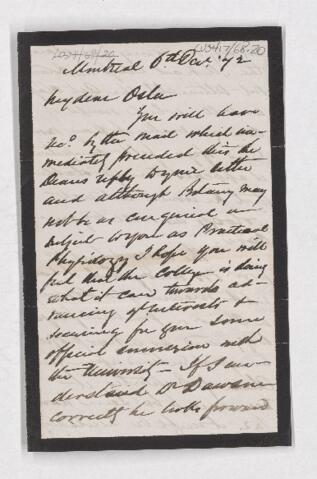 CUS417/68.20
Montreal 6th Decr. 72
My dear Osler
You will have
recd. by the mail which im-
mediately preceded this the
Deans reply to your letter
and although Botany may
not be as congenial a
subject to you as Practical
Physiology I hope you will
feel that the College is doing
what it can towards ad-
vancing yr interests &
securing for you some
official connexion with
the University — If I un-
derstand Dr Dawson
correctly he looks forward